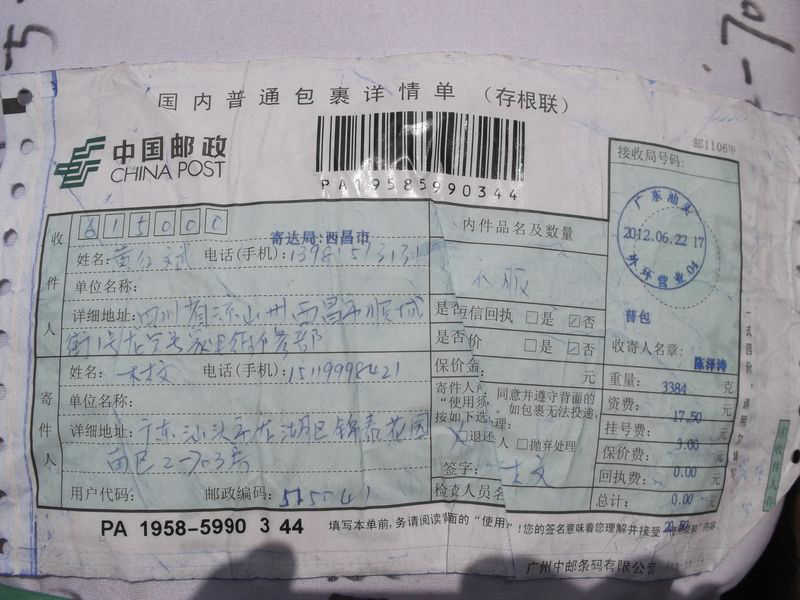 国内普通包裹详情单 (存根联)
中国邮政
CHINA POST
PA19585990344
邮1106甲
接收局号码:
广东汕头
2012.06.22 17
外环营业04
普包
收寄人名章:
陈泽涛
重量: 3384 克
资费: 17.50 元
挂号费: 3.00 元
保价费: 0.00 元
回执费: 0.00 元
总计:
20.50
收件人
615000
寄达局:西昌市
姓名: 电话(手机):
单位名称:
详细地址:四川省凉山州西昌市顺城
街
内件品名及数量
衣服
是否短信回执 □是 ☑否
是否 价 □是 ☑否
保价金: 元
寄件人
姓名: 电话(手机):15119998421
单位名称:
详细地址:广东汕头市龙湖区锦泰花园
西区2-703房
用户代码: 邮政编码:515041
寄件人 同意并遵守背面的
“使用须 。如包裹无法投递,
按如下选 理:
退还 人 □抛弃处理
签字:
检查人员名
PA 1958-5990 3 44
填写本单前,务请阅读背面的“使用 ”!您的签名意味着您理解并接受 内容
广州中邮条码有限公司